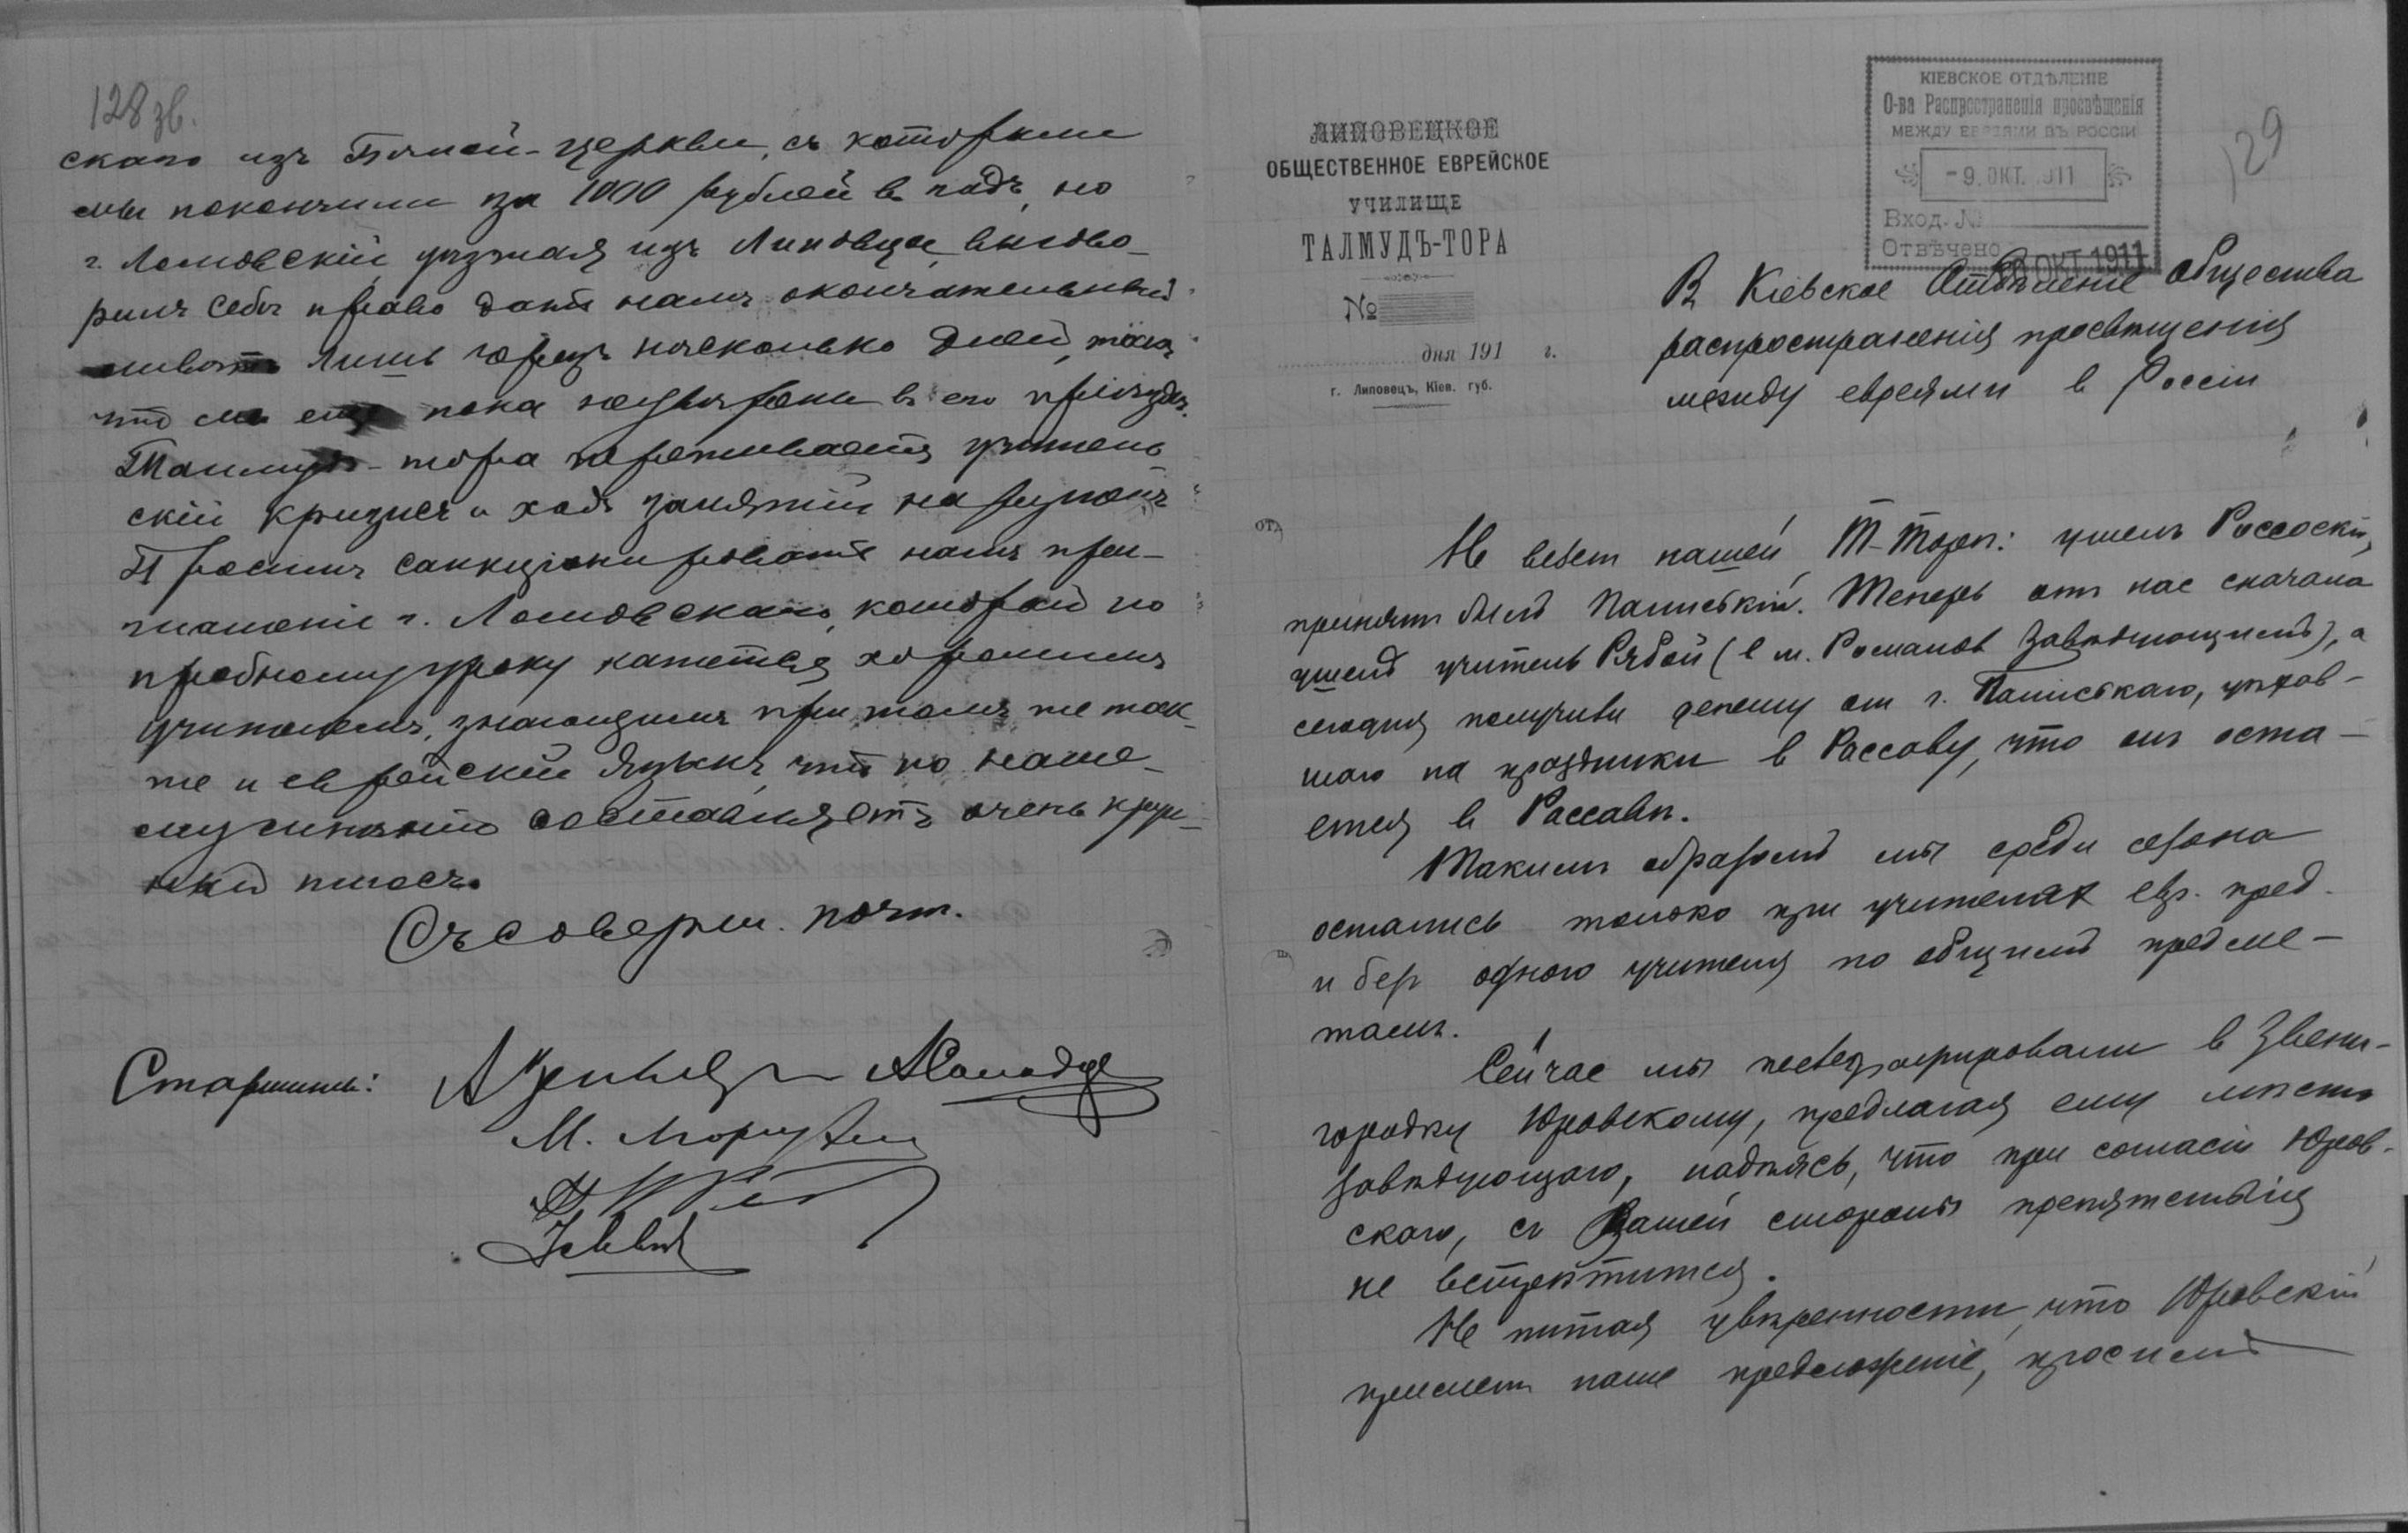 128 зв.
скаго изъ Бѣлой-Церкви, съ которымъ
мы покончили за 1000 рублей въ годъ, но
г. Ломовскій уѣзжая изъ Липовца, выгово-
рилъ себѣ право дать намъ окончательный
отвѣтъ лишь черезъ нѣсколько дней, такъ
что мы еще пока не увѣрены въ его пріѣздѣ.
Талмудъ-тора переживаетъ учитель
скій кризисъ и ходъ занятій нарушенъ
Просимъ санкціонировать нашъ при-
глашеніе г. Ломовскаго, который по
пробному уроку кажется хорошимъ
учителемъ, знающимъ при томъ же так-
же и еврейскій языкъ, что по наше-
му мнѣнію составляетъ очень круп-
ный плюсъ.
Съ соверш. почт.
Старшины:
М.
ЛИПОВЕЦКОЕ
ОБЩЕСТВЕННОЕ ЕВРЕЙСКОЕ
УЧИЛИЩЕ
ТАЛМУДЪ-ТОРА
№
дня 191 г.
г. Липовецъ, Кіев. губ.
КІЕВСКОЕ ОТДѢЛЕНІЕ
О-ва Распространенія просвѣщенія
МЕЖДУ ЕВРЕЯМИ ВЪ РОССІИ
-9. ОКТ. 1911
Вход. №
Отвѣчено
ОКТ 1911
129
В Кіевское Отдѣленіе Общества
распространенія просвѣщенія
между евреями в Россіи
Не везет нашей Т-Торѣ: ушелъ Россоскій,
принятъ былъ Палиевскій. Теперь от нас сначала
ушелъ учитель Рябой (в м. Романов Завѣдующимъ), а
сегодня получили депешу от г. Палиевскаго, уѣхав-
шаго на праздники в Рассаву, что он оста-
ется в Рассавѣ.
Таким образомъ мы среди сезона
остались только при учителях евр. пред.
и без одного учителя по общимъ предме-
тамъ.
Сейчас мы протелеграфировали в Звени-
городку Юровскому, предлагая ему мѣсто
завѣдующаго, надѣясь, что при согласіи Юров-
скаго, с Вашей стороны препятствія
не встрѣтится.
Не питая увѣренности, что Юровскій
приметъ наше предложеніе, просимъ